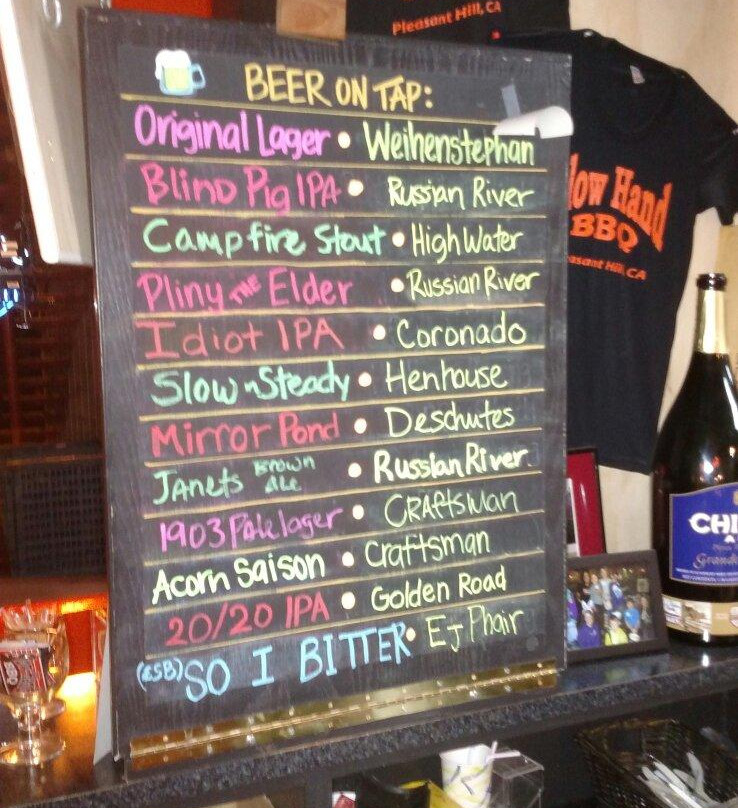 Pleasant Hill, CA
BEER ON TAP:
Original Lager • Weihenstephan
Blind Pig IPA • Russian River
Campfire Stout • High Water
Pliny THE Elder • Russian River
Idiot IPA • Coronado
Slow n Steady • Henhouse
Mirror Pond • Deschutes
Janets Brown Ale • Russian River
1903 Pale lager • CRAftsman
Acorn Saison • Craftsman
20/20 IPA • Golden Road
(ESB) SO I BITTER • EJ Phair
low Hand
BBQ
easant Hill, CA
CHI
Grand